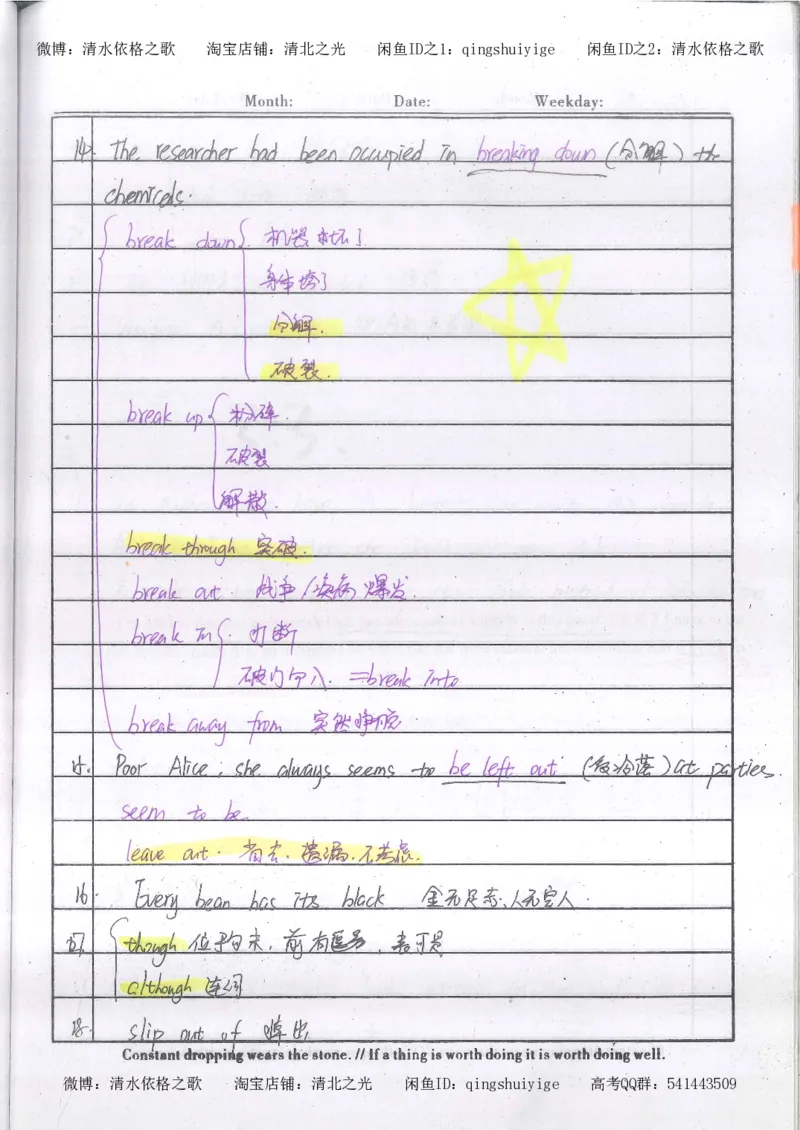 微博：清水依格之歌 淘宝店铺：清北之光 闲鱼ID之1：qingshuiyige 闲鱼ID之2：清水依格之歌
Month: Date: Weekday:
14. The researcher had been occupied in breaking down (分解) the
chemicals.
break down 机器坏了.
身体垮了
分解.
破裂.
break up 粉碎.
破裂
解散.
break through 突破.
break out 战争/疾病 爆发.
break in 打断
破门而入. =break into
break away from 突然挣脱
15. Poor Alice, she always seems to be left out (被冷落) at parties.
seem to be
leave out. 省去. 遗漏. 不考虑.
16. Every bean has its black 金无足赤,人无完人.
17. though 位于句末, 前有逗号,
although 连词
18. slip out of
Constant dropping wears the stone. // If a thing is worth doing it is worth doing well.
微博：清水依格之歌 淘宝店铺：清北之光 闲鱼ID：qingshuiyige 高考QQ群：541443509